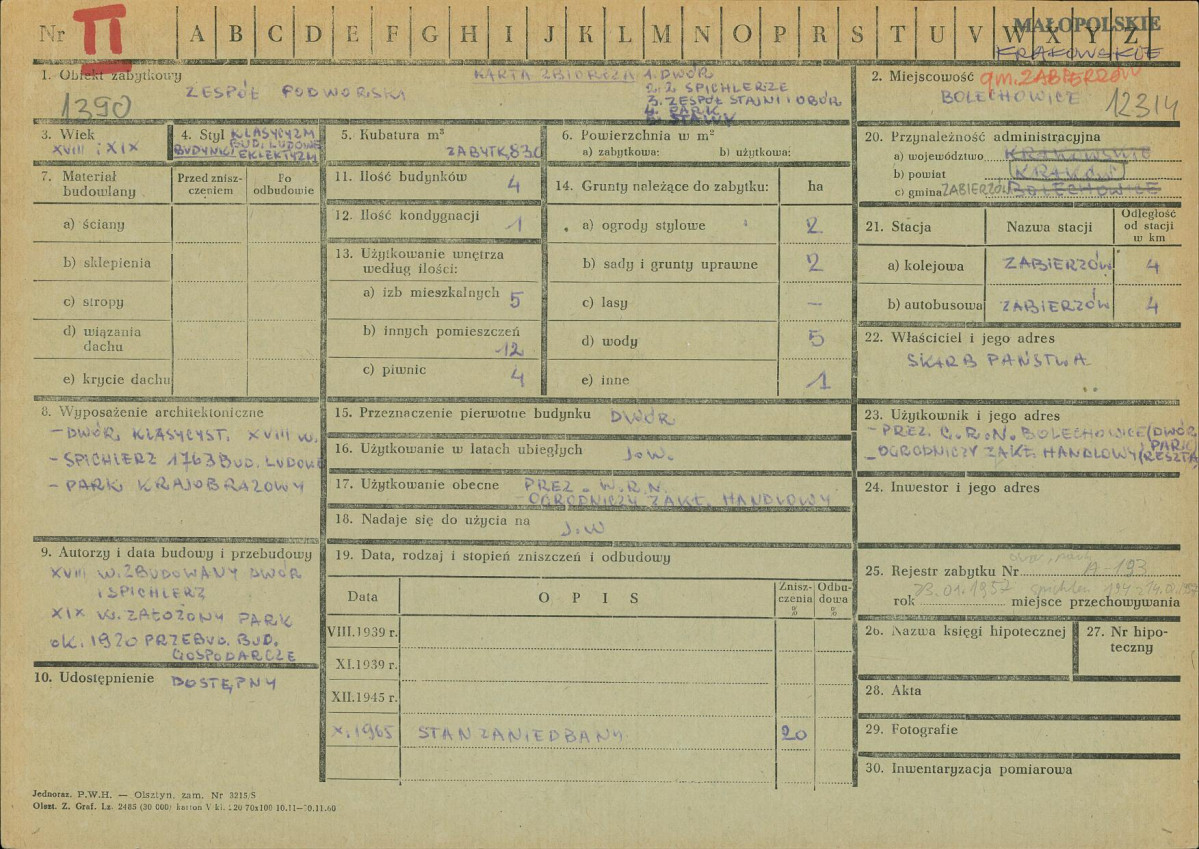 Nr II A B C D E F G H I J K L M N O P R S T U V W X Y Z
MAŁOPOLSKIE
KRAKOWSKIE
1. Obiekt zabytkowy
1390
ZESPÓŁ PODWORSKI
KARTA ZBIORCZA 1. DWÓR
2. 2 SPICHLERZE
3. ZESPÓŁ STAJNI I OBÓR
4. PARK
5. STAWY
2. Miejscowość gm. ZABIERZÓW
BOLECHOWICE 12314
3. Wiek
XVIII i XIX
4. Styl KLASYCYZM
BUD. LUDOWE
BUDYNKI EKLEKTYZM
5. Kubatura m³
ZABYTK. 830
6. Powierzchnia w m²
a) zabytkowa: b) użytkowa:
7. Materiał budowlany
Przed zniszczeniem
Po odbudowie
a) ściany
b) sklepienia
c) stropy
d) wiązania dachu
e) krycie dachu
8. Wyposażenie architektoniczne
- DWÓR KLASYCYST. XVIII w.
- SPICHIERZ 1763 BUD. LUDOWE
- PARK KRAJOBRAZOWY
9. Autorzy i data budowy i przebudowy
XVIII W. ZBUDOWANY DWÓR
I SPICHIERZ
XIX W. ZAŁOŻONY PARK
OK. 1920 PRZEBUD. BUD.
GOSPODARCZE
10. Udostępnienie DOSTĘPNY
11. Ilość budynków 4
12. Ilość kondygnacji 1
13. Użytkowanie wnętrza według ilości:
a) izb mieszkalnych 5
b) innych pomieszczeń 12
c) piwnic 4
14. Grunty należące do zabytku: ha
a) ogrody stylowe 2
b) sady i grunty uprawne 2
c) lasy —
d) wody 5
e) inne 1
15. Przeznaczenie pierwotne budynku DWÓR
16. Użytkowanie w latach ubiegłych J.W.
17. Użytkowanie obecne PREZ. W.R.N.
- OGRODNICZY ZAKŁ. HANDLOWY
18. Nadaje się do użycia na J.W
19. Data, rodzaj i stopień zniszczeń i odbudowy
Data
O P I S
Zniszczenia %
Odbudowa %
VIII.1939 r.
XI.1939 r.
XII.1945 r.
X.1965 STAN ZANIEDBANY 20
20. Przynależność administracyjna
a) województwo KRAKOWSKIE
b) powiat KRAKÓW
c) gmina ZABIERZÓW BOLECHOWICE
21. Stacja
Nazwa stacji
Odległość od stacji w km
a) kolejowa ZABIERZÓW 4
b) autobusowa ZABIERZÓW 4
22. Właściciel i jego adres
SKARB PAŃSTWA
23. Użytkownik i jego adres
- PREZ. G.R.N. BOLECHOWICE (DWÓR
PARK)
- OGRODNICZY ZAKŁ. HANDLOWY (RESZTA)
24. Inwestor i jego adres
25. Rejestr zabytku Nr A-193
rok 23.01.1957 miejsce przechowywania
26. Nazwa księgi hipotecznej
27. Nr hipoteczny
28. Akta
29. Fotografie
30. Inwentaryzacja pomiarowa
Jednoraz. P.W.H. — Olsztyn, zam. Nr 3215/S
Olszt. Z. Graf. Lz. 2485 (30 000) karton V kl. 120 70x100 10.11—10.11.60